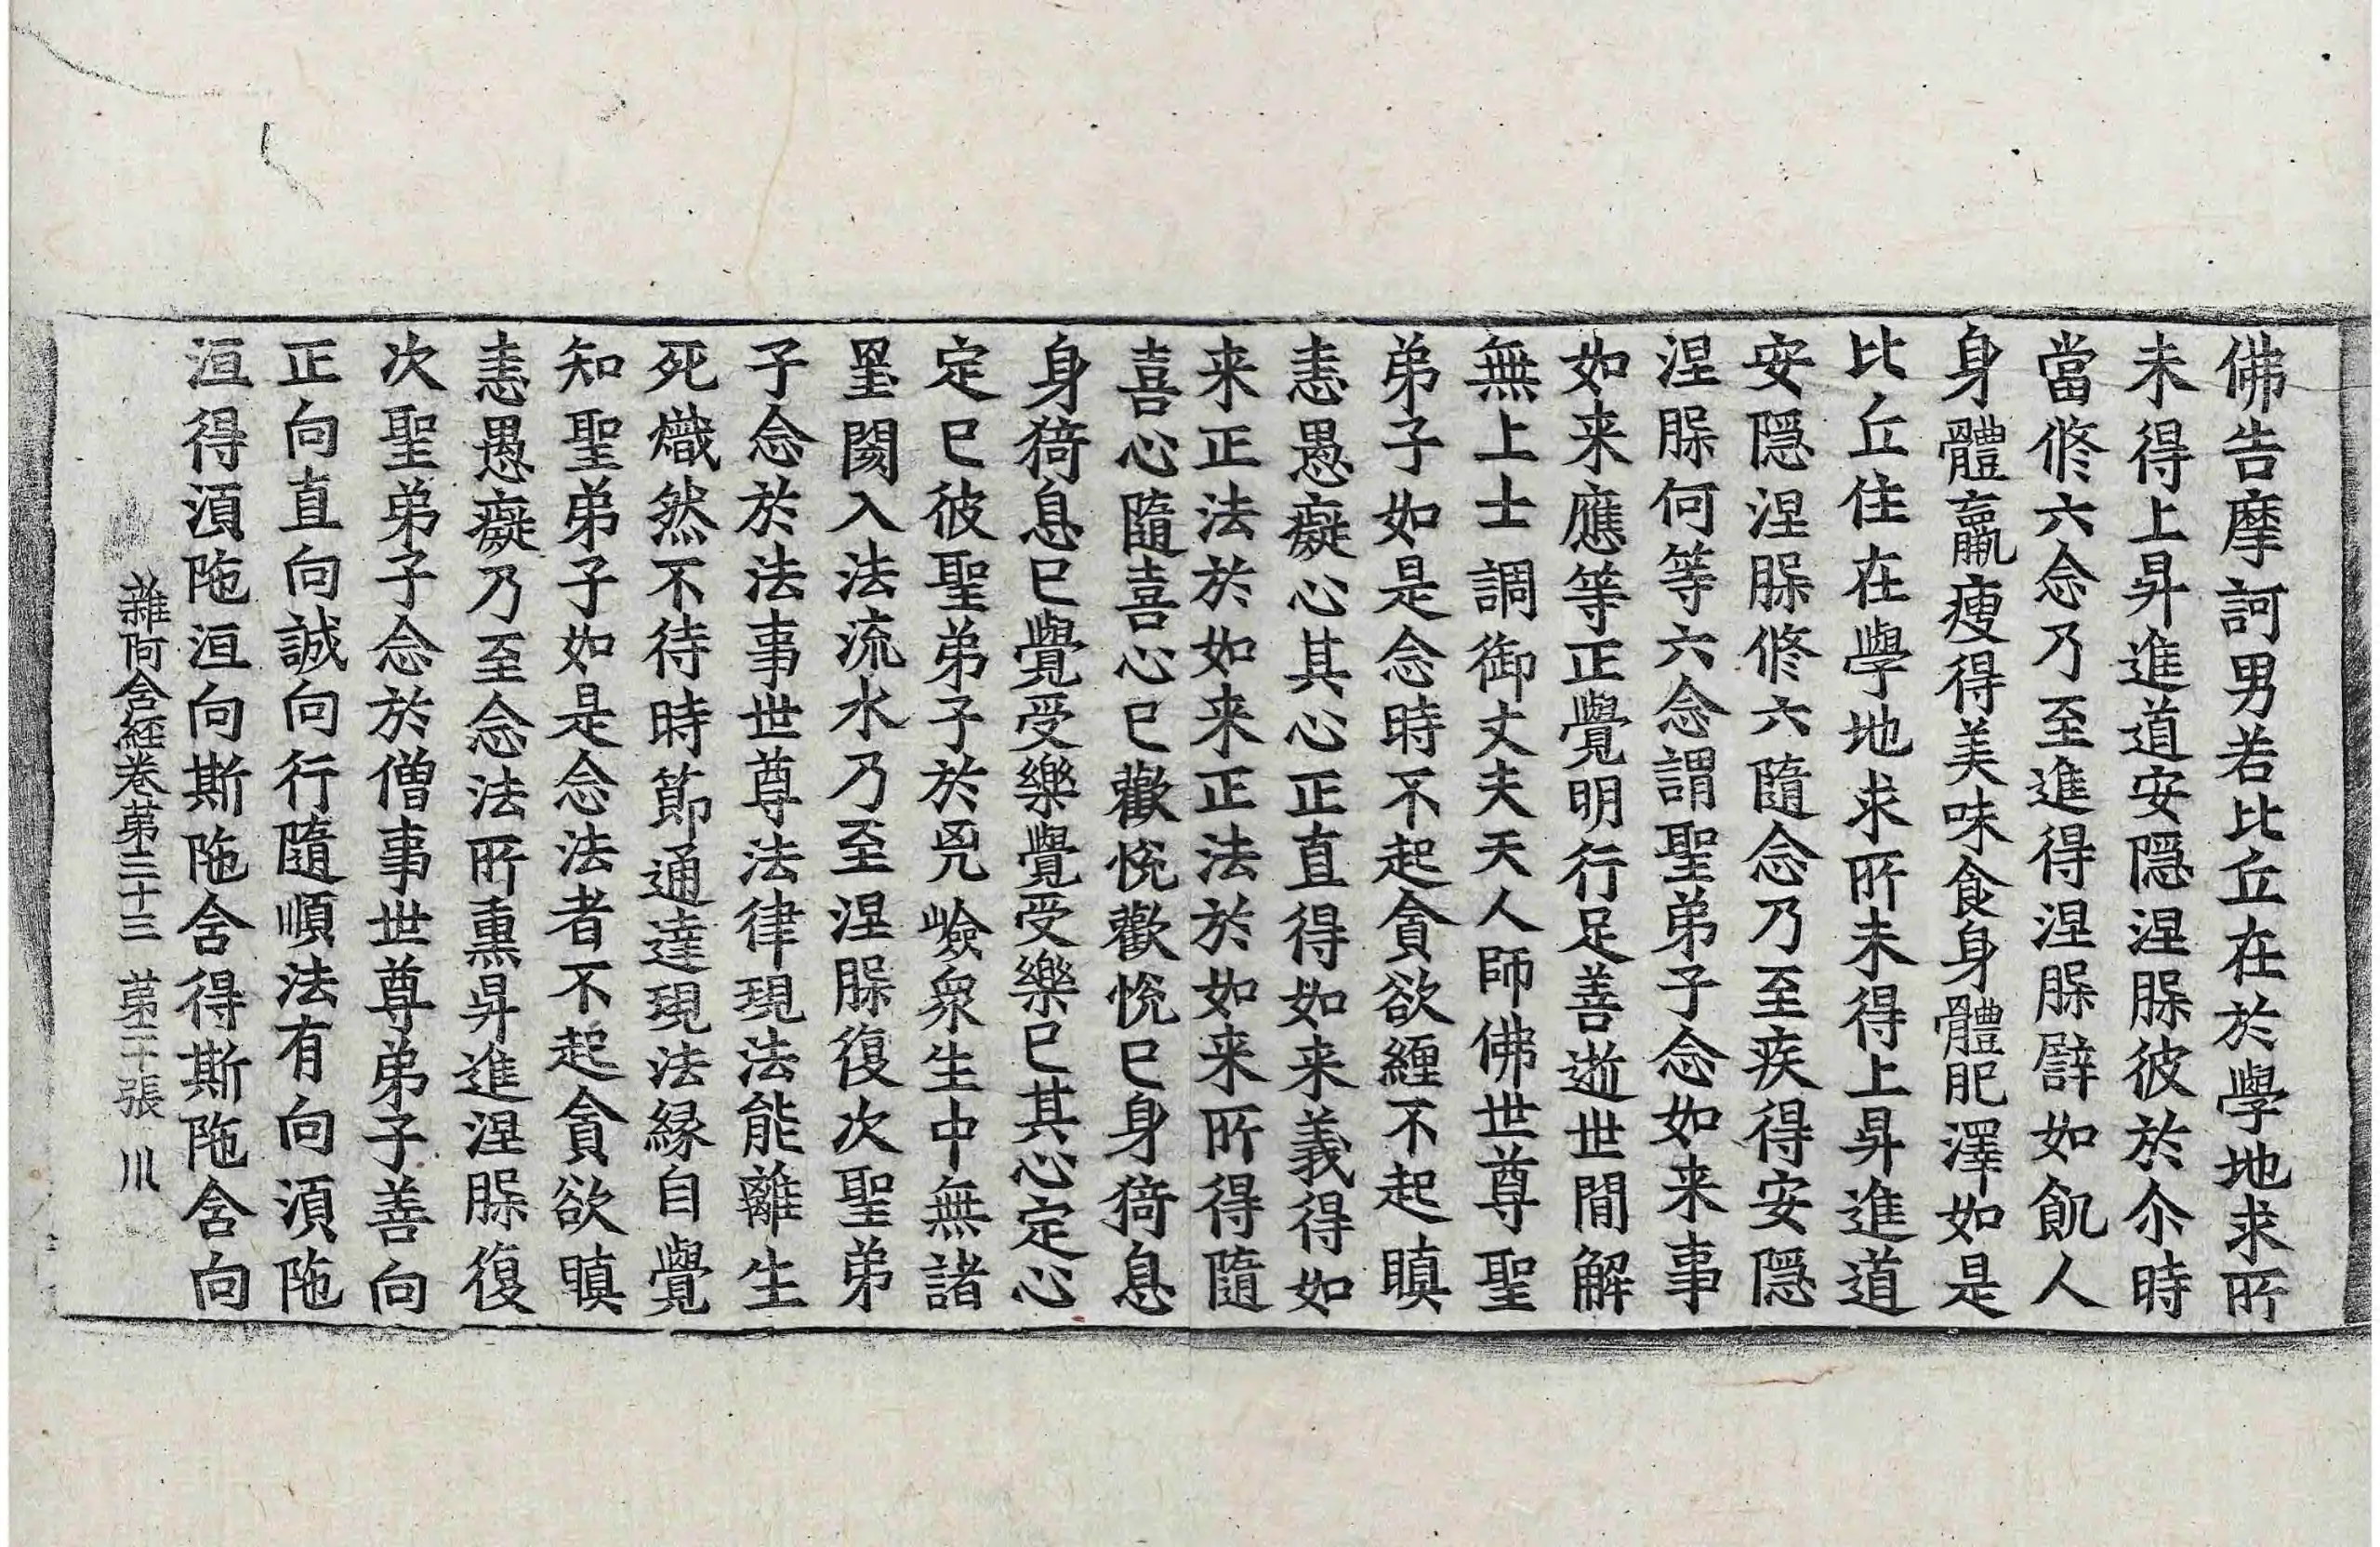 佛告摩訶男若比丘在於學地求所
未得上昇進道安隱涅槃彼於尒時
當修六念乃至進得涅槃譬如飢人
身體羸瘦得美味食身體肥澤如是
比丘住在學地求所未得上昇進道
安隱涅槃修六隨念乃至疾得安隱
涅槃何等六念謂聖弟子念如来事
如来應等正覺明行足善逝世間解
無上士調御丈夫天人師佛世尊聖
弟子如是念時不起貪欲纏不起瞋
恚愚癡心其心正直得如来義得如
来正法於如来正法於如来所得隨
喜心隨喜心已歡悅歡悅已身猗息
身猗息已覺受樂覺受樂已其心定心
定已彼聖弟子於兇嶮衆生中無諸
罣閡入法流水乃至涅槃復次聖弟
子念於法事世尊法律現法能離生
死熾然不待時節通達現法緣自覺
知聖弟子如是念法者不起貪欲瞋
恚愚癡乃至念法所熏昇進涅槃復
次聖弟子念於僧事世尊弟子善向
正向直向誠向行隨順法有向湏陁
洹得湏陁洹向斯陁含得斯陁含向
雜阿含經卷第三十三　第二十張　川